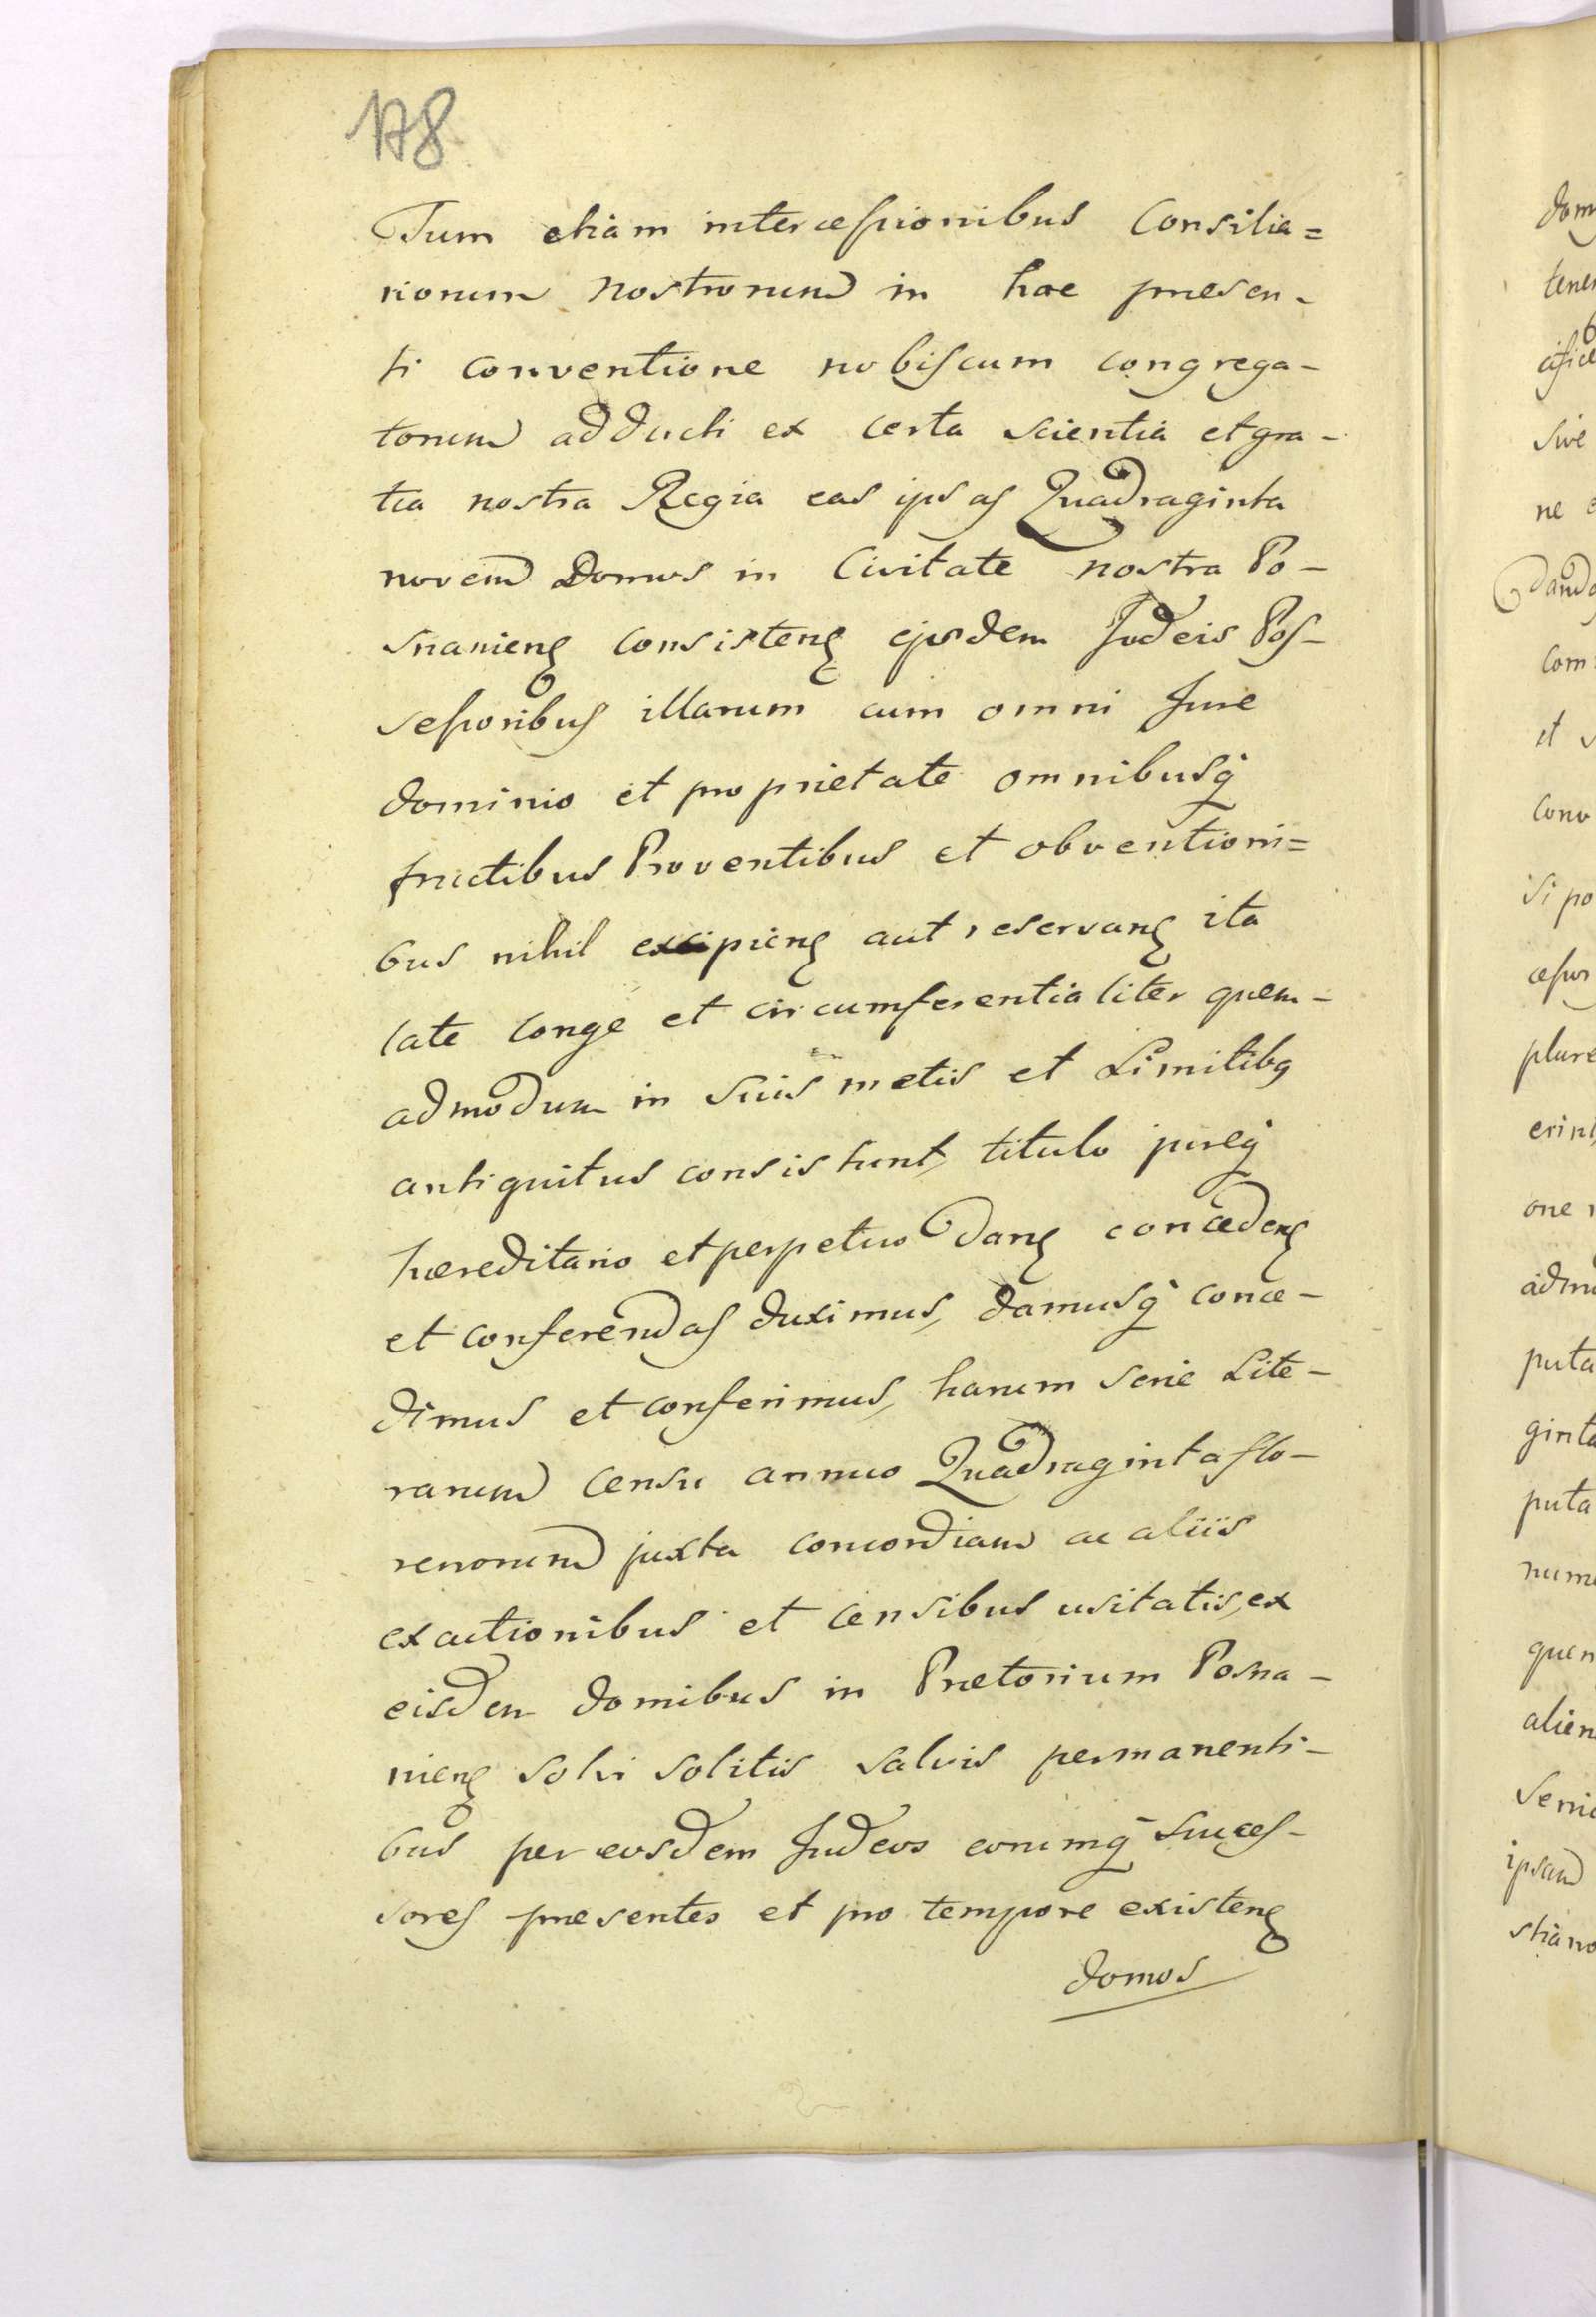 178
Tum etiam intercessionibus Consilia=
riorum Nostrorum in hac praesen-
ti conventione nobiscum congrega-
torum adducti ex certa scientia et gra-
tia nostra Regia eas ipsas Quadraginta
novem Domos in Civitate nostra Po-
snanieñ consisteñ ejsdem Judeis Pos-
sessoribus illarum cum omni Jure
dominio et proprietate omnibusq
fructibus Proventibus et obventioni=
bus nihil excipieñ aut reservañ ita
late longe et circumferentialiter quem-
admodum in suis metis et Limitibq
antiquitus consistunt, titulo jureq
haereditario et perpetuo dañ concedeñ
et conferendas duximus, damusq conce-
dimus et conferimus, harum serie Lite-
rarum Censu annuo Quadraginta flo-
renorum juxta concordiam ac aliis
exactionibus et censibus usitatis, ex
eisdem domibus in Praetorium Posna-
nieñ solvi solitis salvis permanenti-
bus per eosdem Judeos eorumq succes-
sores praesentes et pro tempore existeñ
domos
dom
tene
sive
ne
Com
et
Conv
si po
plure
erint
one
admo
puta
ginta
puta
nume
quen
alien
ipsam
stiano